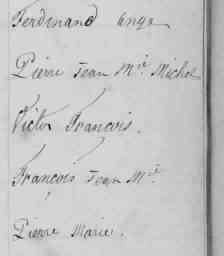 Ferdinand ange
Pierre Jean Mie Michel
Victor François.
François Jean Mie
Pierre Marie.